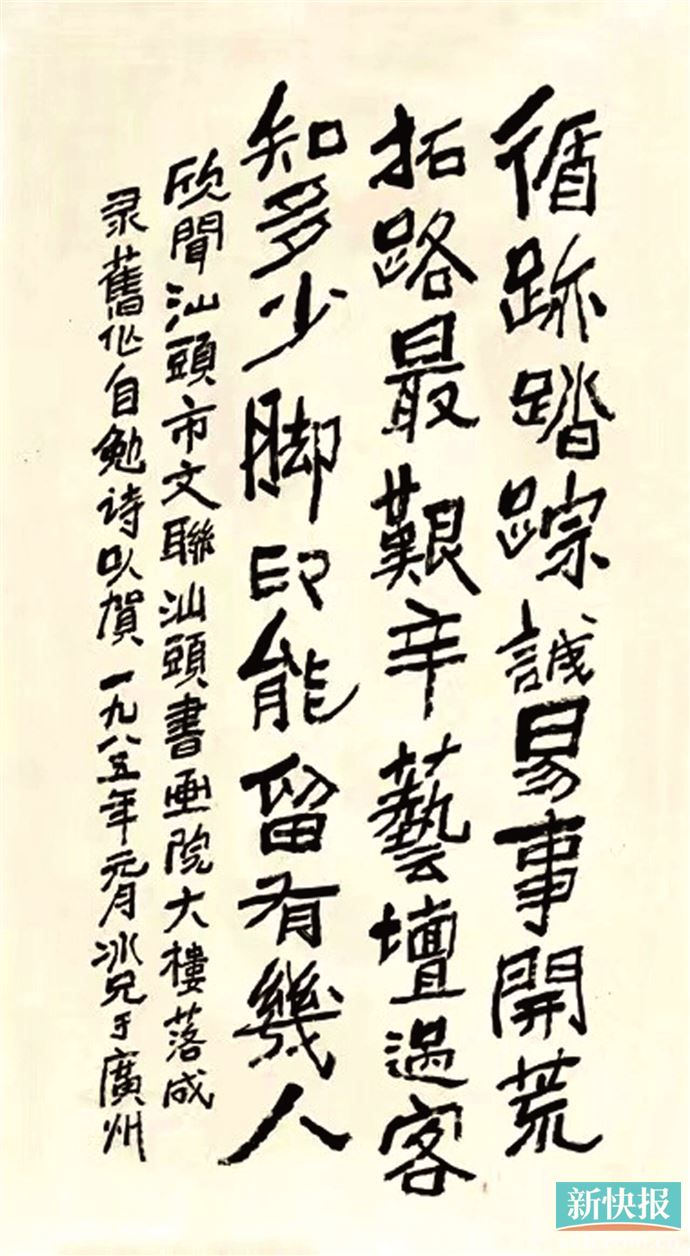 循跡踏踪誠易事開荒
拓路最艱辛藝壇過客
知多少脚印能留有幾人
欣聞汕頭市文聯汕頭書画院大樓落成
录舊作自勉詩以賀一九八五年元月冰兄于廣州
新快报